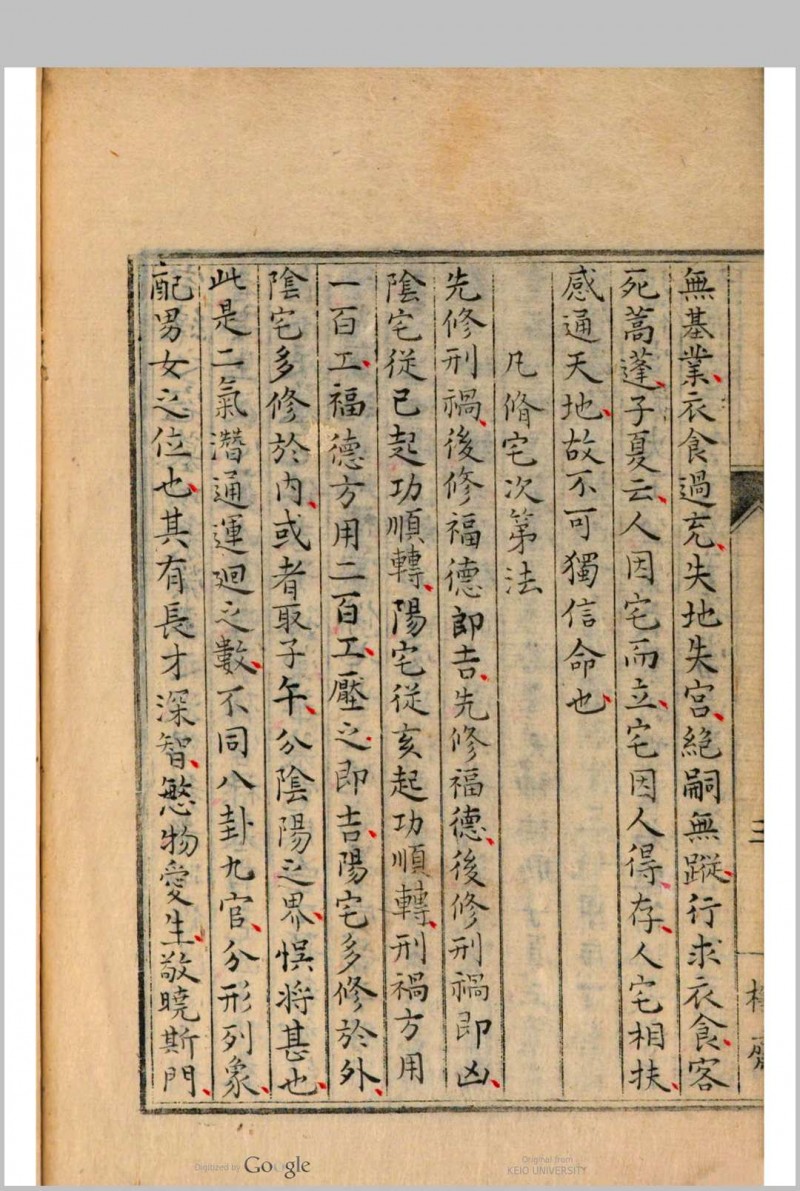 無基業衣食過充失地失宮絕嗣無蹤行求衣食客
死蒿蓬子夏云人因宅而立宅因人得存人宅相扶
感通天地故不可獨信命也
凡脩宅次第法
先修刑禍後修福德即吉先修福德後修刑禍即凶
陰宅從巳起功順轉陽宅從亥起功順轉刑禍方用
一百工福德方用二百工壓之即吉陽宅多修於外
陰宅多修於內或者取子午分陰陽之界悮将甚也
此是二氣潛通運迴之數不同八卦九宮分形列象
配男女之位也其有長才深智慜物愛生敬曉斯門
三
Digitized by Google
Original from
KEIO UNIVERSITY